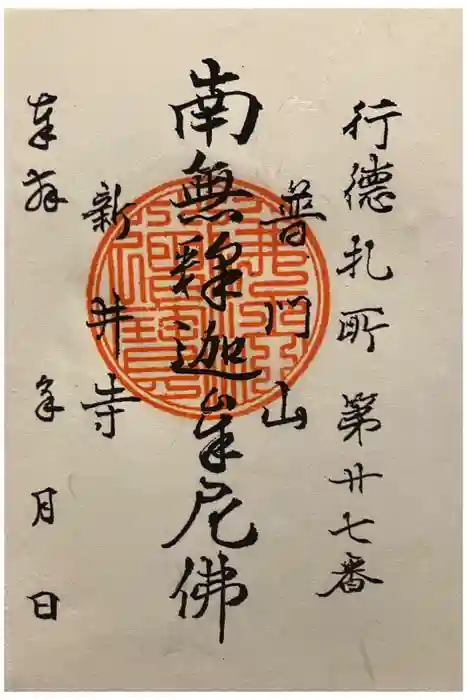 行徳札所 第廿七番
普門山
南無釋迦牟尼佛
新井寺
奉拝 年 月 日